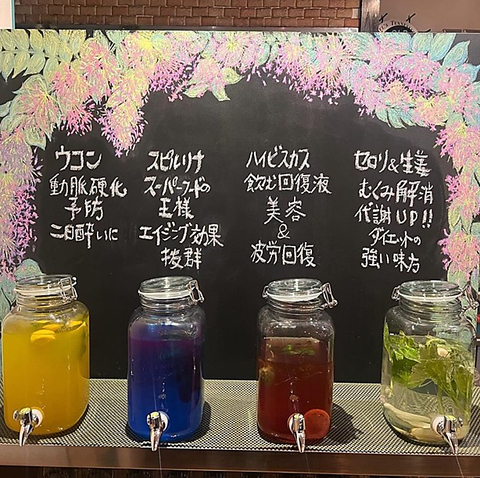 ウコン
動脈硬化
予防
二日酔いに
スピルリナ
スーパーフードの
王様
エイジング効果
抜群
ハイビスカス
飲む回復液
美容
&
疲労回復
セロリ&生姜
むくみ解消
代謝UP!!
ダイエットの
強い味方